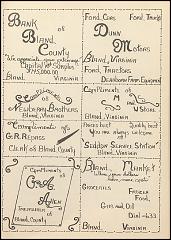 Bank
of
Bland
County
"We appreciate your patronage"
Capital and Surplus
$145,000.00
Bland, Virginia
Ford Cars Ford Trucks
Dunn
Motors
Bland, Virginia
Ford Tractors
Dearborn Farm Equipment
Compliments
of
Newberry Brothers
Bland, Virginia
Compliments
of
M and J
Store
Bland, Virginia
Compliments of
G.R. Repass
Clerk of Bland County
You are always welcome
at
Seddon Service Station
Bland, Virginia
Compliments
of
Allen
Treasurer
of
Bland County
Bland Market
Groceries
Fresh
Feed
Gas and Oil
Dial-633
Bland, Virginia